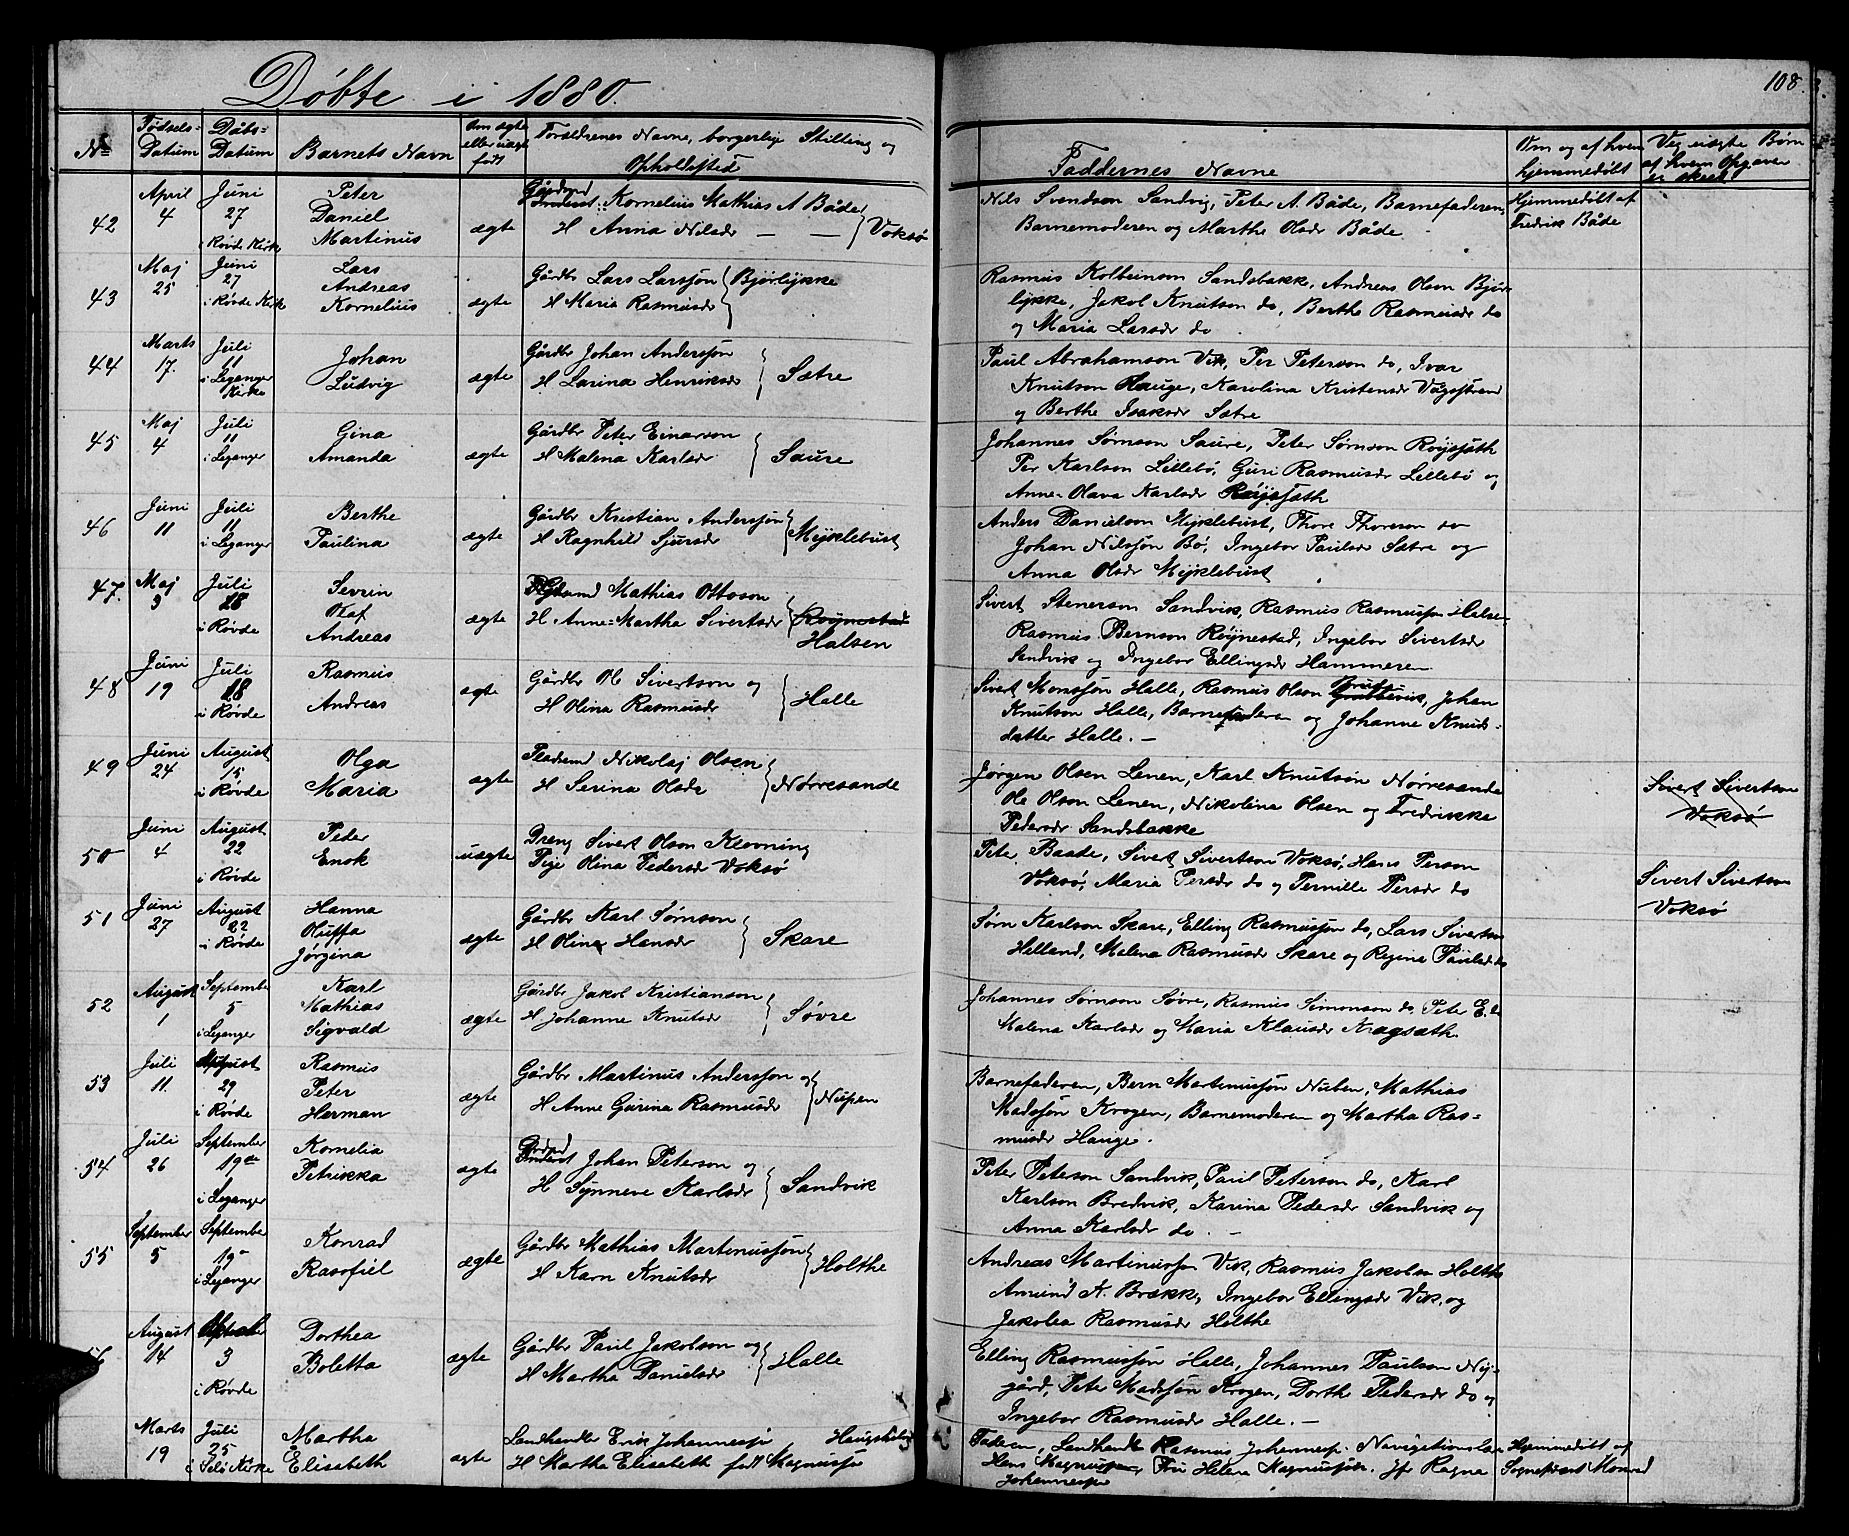 Døbte i 1880.
108
No
Fødsels-
Datum
Dåbs-
Datum
Barnets Navn
Om ægte
eller uægte
født
Forældrenes Navne, borgerlige Stilling og
Opholdssted
Faddernes Navne
Om og af hvem
hjemmedøbt
Ved uægte Børn
af hvem Opgaven
er skeet
42
April
4
Juni
27
i Røvde Kirke
Peter
Daniel
Martinus
ægte
Gårdmd
Kornelius Mathias A Både
H Anna Nilsdr — —
Voksø
Nils Svendson Sandvig, Peter A. Både, Barnefaderen,
Barnemoderen og Marthe Olsdr Både
Hjemmedøbt af
Fredrik Både
43
Maj
25
Juni
27
i Røvde Kirk
Lars
Andreas
Kornelius
ægte
Gårdbr Lars Larssøn
H Maria Rasmusdr
Bjørlykke
Rasmus Kolbeinson Sandsbakk, Andreas Olson Bjør-
lykke, Jakob Knutson do, Berthe Rasmusdr do
og Maria Larsdr do
44
Marts
17.
Juli
11
i Leganger
Kirke
Johan
Ludvig
ægte
Gårdbr Johan Anderssøn
H Larina Henriksdr
Sætre
Paul Abrahamson Vik, Per Peterson do, Ivar
Knutson Hauge, Karolina Kristensdr Vågsstrand
og Berthe Isaksdr Sætre
45
Maj
4
Juli
11
i Leganger
Gina
Amanda
ægte
Gårdbr Peter Einarson
H Malena Karlsdr
Saure
Johannes Sørnson Saure, Peter Sørnson Røyssæth
Per Karlson Lillebø, Guri Rasmusdr Lillebø og
Anne-Olava Karlsdr Røyssæth
46
Juni
11
Juli
11
i Leganger
Berthe
Paulina
ægte
Gårdbr Kristian Anderssøn
H Ragnhild Sjursdr
Myklebust
Anders Danielson Myklebust, Thore Thoreson do
Johan Nilssøn Bø, Ingebor Paulsdr Sætre og
Anna Olsdr Myklebust
47.
Maj
3
Juli
18
i Røvde
Sevrin
Olaf
Andreas
ægte
Mathias Ottoson
H Anne-Martha Sivertsdr
Røynestad
Halsen
Sivert Stenerson Sandvik, Rasmus Rasmussøn Halse-
Rasmus Bernson Røynestad, Ingebor Sivertsdr
Sandvik og Ingebor Ellingsdr Hammeren
48
Juni
19
Juli
18
i Røvde
Rasmus
Andreas
ægte
Gårdbr Ole Sivertson og
H Olina Rasmusdr
Halle
Sivert Monssøn Halle, Rasmus Olson Johan
Knutson Halle, Barnefaderen og Johanne Knuds-
datter Halle. —
49
Juni
24
August
15
i Røvde
Olga
Maria
ægte
Pladsmd Nikolaj Olsen
H Serina Olsdr
Nørresande
Jørgen Olsen Lenen, Karl Knutson Nørresande
Ole Olson Lenen, Nikolina Olsen og Fredrikke
Pedersdr Sandsbakke
Sivert Sivertson
Voksø
50
Juni
4
August
22
i Røvde
Peder
Enok
uægte
Dreng Sivert Olson Klovning
Pige Olina Pedersdr Voksø
Pete. Baade, Sivert Sivertson Voksø, Hans Person
Voksø, Maria Persdr do og Pernille Persdr do
Sivert Sivertson
Voksø
51
Juni
27
August
22
i Røvde
Hanna
Oluffa
Jørgina
ægte
Gårdbr Karl Sørnson
H Olina Hansdr
Skare
Sørn Karlson Skare, Elling Rasmussøn do, Lars Sivertson
Helland, Malena Rasmusdr Skare og Regine Paulsd do
52
August
1
September
5
i Leganger
Karl
Mathias
Sigvald
ægte
Gårdbr Jakob Kristianson
H Johanne Knutsdr
Søvre
Johannes Sørnson Søvre, Rasmus Simonson do, Peter E. do
Malena Karlsdr og Maria Klausdr Kragsæth.
53
Juli
11.
August
29
i Røvde
Rasmus
Peter
Herman
ægte
Gårdbr Martinus Anderssøn og
H Anne Gurina Rasmusdr
Nupen
Barnefaderen, Bern Martinussøn Nuben, Mathias
Madssøn Krogen, Barnemoderen og Martha Ras-
musdr Hauge.
54
Juli
26
September
19de
i Leganger
Kornelia
Petrikka
ægte
Johan Peterson og
H Synneve Karlsdr
Sandvik
Peter Peterson Sandvik, Paul Peterson do, Karl
Karlson Bredvik, Karina Pedersdr Sandvik og
Anna Karlsdr do. —
55
September
5
September
19de
i Leganger
Konrad
Rasofiel
ægte
Gårdbr Mathias Martinussøn
H Karn Knutsdr
Holthe
Andreas Martinussøn Vik, Rasmus Jakobson Holthe
Amund K. Brækk, Ingebor Ellingsdr Vik, og
Jakobea Rasmusdr Holthe
56
August
14
3
i Røvde
Dorthea
Boletta
ægte
Gårdbr Paul Jakobson og
H Martha Danielsdr
Halle
Elling Rasmussøn Halle, Johannes Paulson Ny-
gård, Pete Madssøn Krogen, Dorthe Pedersdr do og
Ingebor Rasmusdr Halle. —
Marts
19
Juli
25
i Selø Kirke
Martha
Elisabeth
ægte
Landhandler Erik Johannessøn
H Martha Elisabeth født Magnussøn
Faderen, Landhandl Rasmus Johannessøn. Navigationslæ
Hans Magnussøn, Fru Helena Magnussøn. Jfr Ragna
Johannessøn
Hjemmedøbt af
Sognepræst Monrad